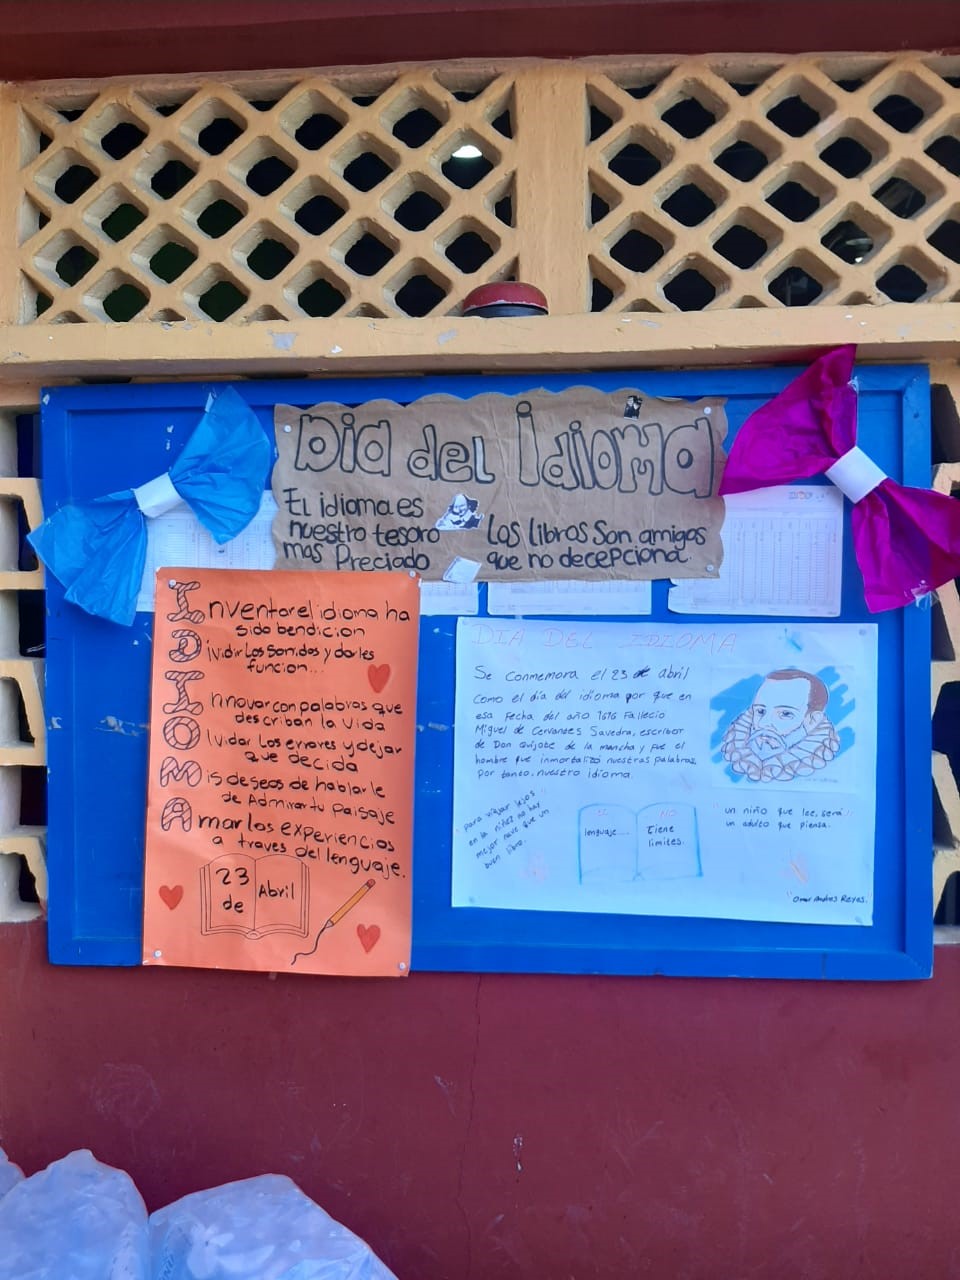 Dia del Idioma
El idioma es
nuestro tesoro
mas Preciado
Los libros Son amigos
que no decepciona.
Inventar el idioma ha
sido bendicion
Dividir Los Sonidos y darles
funcion...
Innovar con palabras que
describan la vida
Olvidar Los errores y dejar
que decida
Mis deseos de hablarle
de Admirar tu paisaje
Amar los experiencios
a traves del lenguaje.
23
de
Abril
DIA DEL IDIOMA
Se conmemora el 23 de abril
como el día del idioma por que en
esa fecha del año 1616 Fallecio
Miguel de Cervantes Savedra, escribor
de Don quijote de la mancha y fue el
hombre que inmortalizo nuestras palabras,
por tanto, nuestro idioma.
"para viajar lejos
en la niñez no hay
mejor nave que un
buen libro.
EL
lenguaje....
NO
Tiene
limites.
"un niño que lee, será
un adulto que piensa.
"Omar Andres Reyes.